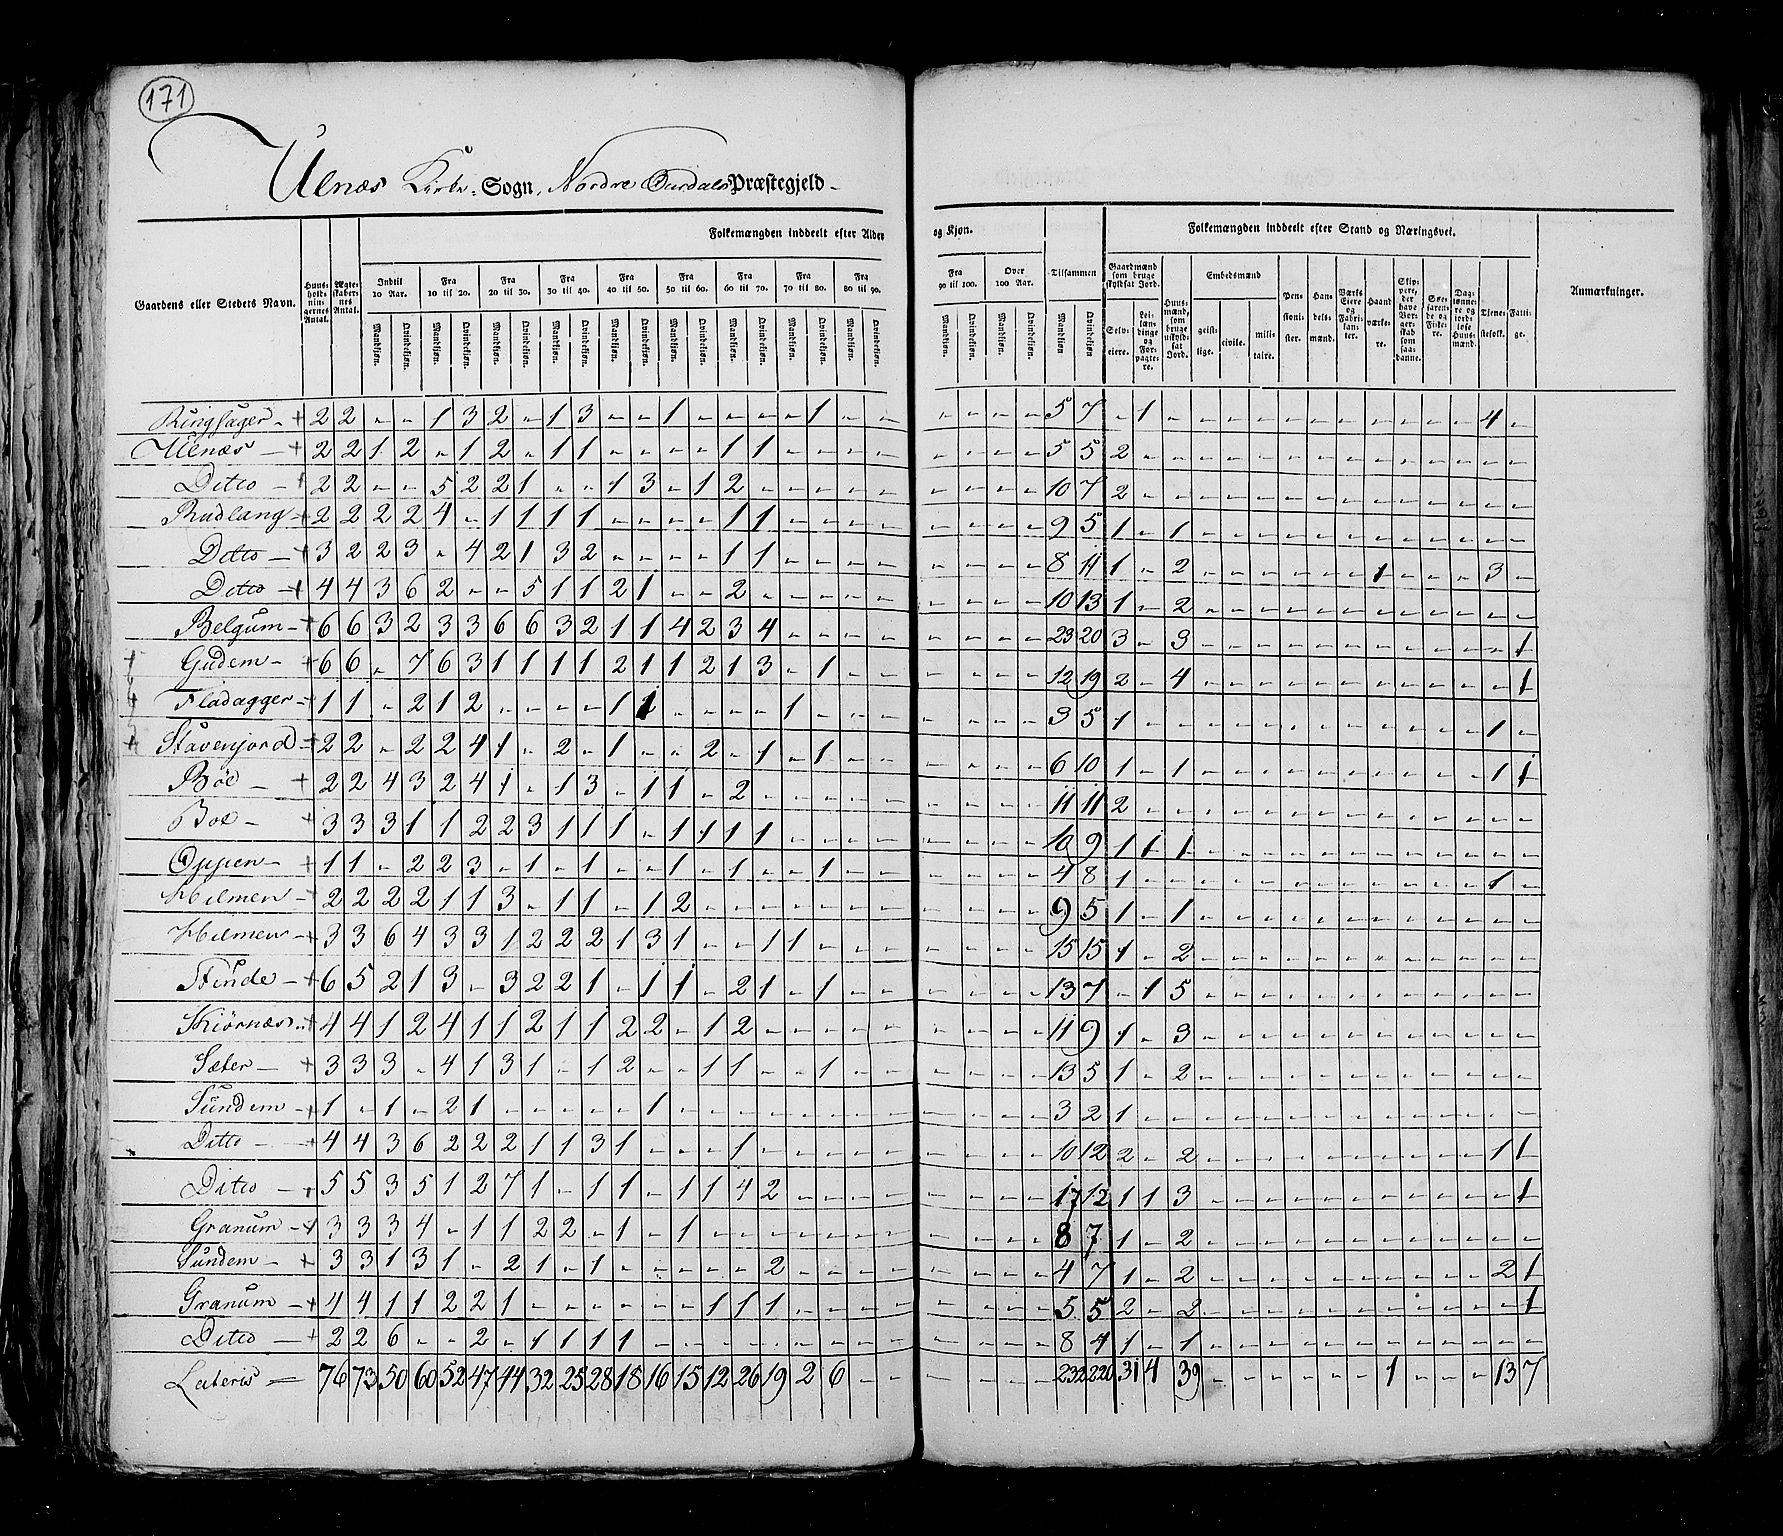 171
Ulnæs Kirke Sogn, Nordre Ourdals Præstegjeld
Gaardens eller Stedets Navn. Huusholdningernes Antal. Ægteskabernes Antal. Folkemængden inddeelt efter Alder og Kjøn. Tilsammen Folkemængden inddeelt efter Stand og Næringsvei. Anmærkninger.
Indtil 10 Aar. Fra 10 til 20. Fra 20 til 30. Fra 30 til 40. Fra 40 til 50. Fra 50 til 60. Fra 60 til 70. Fra 70 til 80. Fra 80 til 90. Fra 90 til 100. Over 100 Aar.
Mandkjøn. Qvindekjøn.
Gaardmænd som bruge skyldsat Jord. Selveiere. Leilændinge og Forpagtere. Huusmænd, som bruge uskyldsat Jord. Embedsmænd geistlige. civile. militaire. Pensionister. Handelsmænd. Værks Eiere og Fabrikanter. Haandværkere. Skippere, der have Borgerskab som saadanne. Søefarende og Fiskere. Daglønnere og jordløse Huusmænd. Tjenestefolk. Fattige.
Ringsager + 2 2 - - 1 3 2 - 1 3 - - 1 - - - - 1 - - - - - - 5 7 - 1 - - - - - - - - - - - 4 -
Ulnæs + 2 2 1 2 - 1 2 - 1 1 - - - - 1 1 - - - - - - - - 5 5 2 - - - - - - - - - - - - - -
Ditto + 2 2 - - 5 2 2 1 - - 1 3 - 1 2 - - - - - - - - - 10 7 2 - - - - - - - - - - - - - -
Rudlang + 2 2 2 2 4 - 1 1 1 1 - - - - 1 1 - - - - - - - - 9 5 1 - 1 - - - - - - - - - - - -
Ditto + 3 2 2 3 - 4 2 1 3 2 - - - - 1 1 - - - - - - - - 8 11 1 - 2 - - - - - - 1 - - - 3 -
Ditto + 4 4 3 6 2 - - 5 1 1 2 1 - - 2 - - - - - - - - - 10 13 1 - 2 - - - - - - - - - - - -
Belgum + 6 6 3 2 3 3 6 6 3 2 1 1 4 2 3 4 - - - - - - - - 23 20 3 - 3 - - - - - - - - - - - 1
Gudem + 6 6 - 7 6 3 1 1 1 1 2 1 1 2 1 3 - 1 - - - - - - 12 19 2 - 4 - - - - - - - - - - - 1
Fladagger + 1 1 - 2 1 2 - - - - 1 1 - - - - 1 - - - - - - - 3 5 1 - - - - - - - - - - - - 1 -
Stavenjord + 2 2 - 2 2 4 1 - 2 - 1 - - 2 - 1 - 1 - - - - - - 6 10 1 - 1 - - - - - - - - - - 1 1
Böe + 2 2 4 3 2 4 1 - 1 3 - 1 1 - 2 - - - - - - - - - 11 11 2 - - - - - - - - - - - - - -
Boe + 3 3 3 1 1 2 2 3 1 1 1 - 1 1 1 1 - - - - - - - - 10 9 1 1 1 - - - - - - - - - - - -
Oppen + 1 1 - 2 2 3 - 1 - 1 - - 1 - 1 - - 1 - - - - - - 4 8 1 - - - - - - - - - - - - 1 -
Hilmen + 2 2 2 2 1 1 3 - 1 1 - 1 2 - - - - - - - - - - - 9 5 1 - 1 - - - - - - - - - - - -
Hilmen + 3 3 6 4 3 3 1 2 2 2 1 3 1 - - 1 1 - - - - - - - 15 15 1 - 2 - - - - - - - - - - - -
Stende + 6 5 2 1 3 - 3 2 2 1 - 1 1 - 2 1 - 1 - - - - - - 13 7 - 1 5 - - - - - - - - - - - -
Skiörnæs + 4 4 1 2 4 1 1 2 1 1 2 2 - 1 2 - - - - - - - - - 11 9 1 - 3 - - - - - - - - - - - -
Sæter + 3 3 3 - 4 1 3 1 - 1 2 - - 1 1 - - 1 - - - - - - 13 5 1 - 2 - - - - - - - - - - - -
Sundem + 1 - 1 - 2 1 - - - - - 1 - - - - - - - - - - - - 3 2 1 - - - - - - - - - - - - - -
Ditto + 4 4 3 6 2 2 2 1 1 3 1 - - - 1 - - - - - - - - - 10 12 2 - 2 - - - - - - - - - - 1 1
Ditto + 5 5 3 5 1 2 7 1 - 1 1 - 1 1 4 2 - - - - - - - - 17 12 1 1 3 - - - - - - - - - - - 1
Granum + 3 3 3 4 - 1 1 2 2 - 1 - 1 - - - - - - - - - - - 8 7 1 - 2 - - - - - - - - - - - -
Sundem + 3 3 1 3 1 - 2 1 - 1 - - - - - 2 - - - - - - - - 4 7 1 - 2 - - - - - - - - - - 2 1
Granum + 4 4 1 1 2 2 1 - - - - - - 1 1 1 - - - - - - - - 5 5 2 - 2 - - - - - - - - - - - 1
Ditto + 2 2 6 - - 2 - 1 1 1 1 - - - - - - - - - - - - - 8 4 1 - 1 - - - - - - - - - - - -
Lateris 76 73 50 60 52 47 44 32 25 28 18 16 15 12 26 19 2 6 - - - - - - 232 220 31 4 39 - - - - - - 1 - - - 13 7